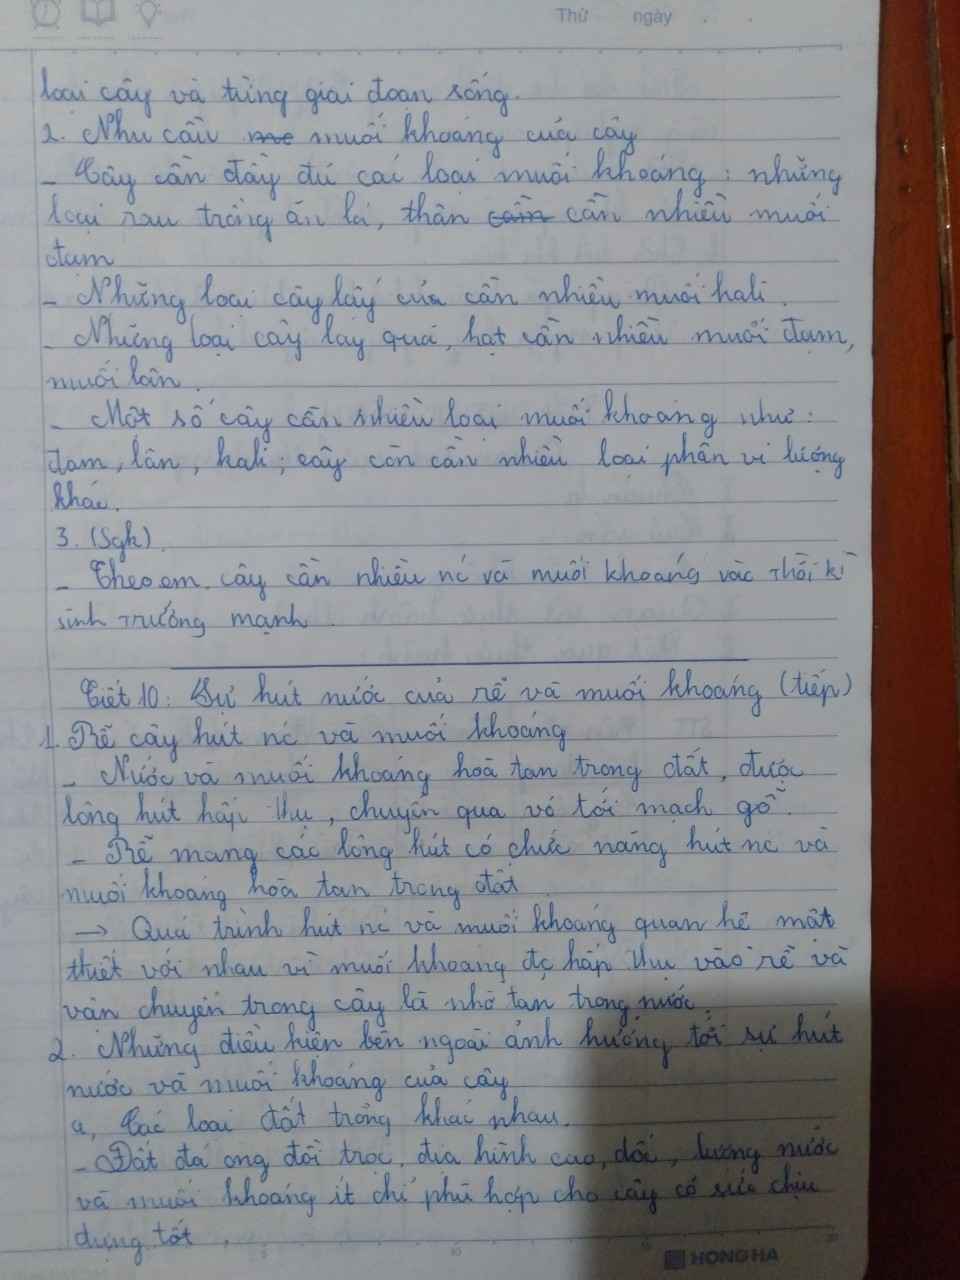 Thứ ngày
loại cây và từng giai đoạn sống.
2. Nhu cầu muối khoáng của cây
- Cây cần đầy đủ các loại muối khoáng : những
loại rau trồng ăn lá, thân cần cần nhiều muối
đạm
- Những loại cây lấy củ cần nhiều muối kali.
- Những loại cây lấy quả, hạt cần nhiều muối đạm,
muối lân.
- Một số cây cần nhiều loại muối khoáng như :
đạm, lân, kali ; cây còn cần nhiều loại phân vi lượng
khác.
3. (Sgk).
- Theo em, cây cần nhiều nc và muối khoáng vào thời kì
sinh trưởng mạnh.
Tiết 10: Sự hút nước của rễ và muối khoáng (tiếp)
1. Rễ cây hút nc và muối khoáng
- Nước và muối khoáng hoà tan trong đất, được
lông hút hấp thụ, chuyển qua vỏ tới mạch gỗ.
- Rễ mang các lông hút có chức năng hút nc và
muối khoáng hoà tan trong đất.
→ Quá trình hút nc và muối khoáng quan hệ mật
thiết với nhau vì muối khoáng đc hấp thụ vào rễ và
vận chuyển trong cây là nhờ tan trong nước.
2. Những điều kiện bên ngoài ảnh hưởng tới sự hút
nước và muối khoáng của cây
a, Các loại đất trồng khác nhau.
- Đất đá ong đồi trọc, địa hình cao, dốc, lượng nước
và muối khoáng ít chỉ phù hợp cho cây có sức chịu
đựng tốt.
HONG HA